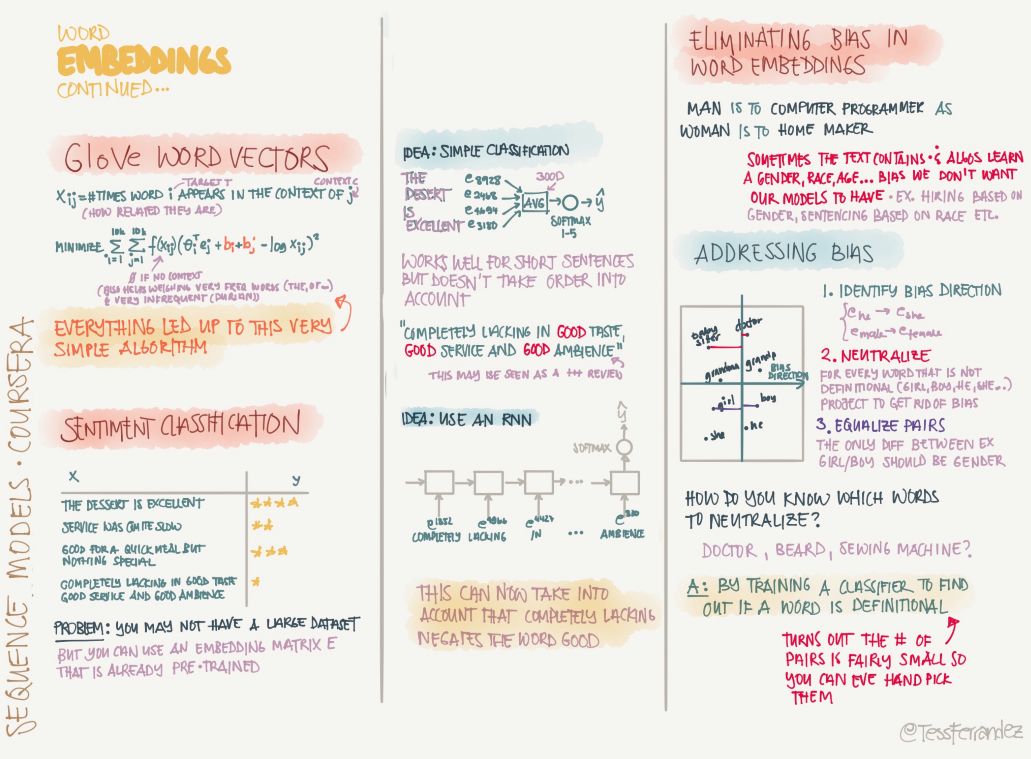 WORD
EMBEDDINGS
CONTINUED...
GloVe WORD VECTORS
TARGET T
CONTEXT C
Xij = #TIMES WORD i APPEARS IN THE CONTEXT OF j
(HOW RELATED THEY ARE)
MINIMIZE Σ i=1 10k Σ j=1 10k f(Xij)(θiᵀej + bi + bj' - log Xij)²
IF NO CONTEXT
(ALSO HELPS WEIGHING VERY FREQ WORDS (THE, OF...)
& VERY INFREQUENT (DURIAN))
EVERYTHING LED UP TO THIS VERY
SIMPLE ALGORITHM
SENTIMENT CLASSIFICATION
X y
THE DESSERT IS EXCELLENT ★★★★
SERVICE WAS QUITE SLOW ★★
GOOD FOR A QUICK MEAL BUT
NOTHING SPECIAL ★★★
COMPLETELY LACKING IN GOOD TASTE
GOOD SERVICE AND GOOD AMBIENCE ★
PROBLEM: YOU MAY NOT HAVE A LARGE DATASET
BUT YOU CAN USE AN EMBEDDING MATRIX E
THAT IS ALREADY PRE-TRAINED
SEQUENCE MODELS · COURSERA
IDEA: SIMPLE CLASSIFICATION
THE e8928
DESERT e2468
IS e4694
EXCELLENT e3180
300D
AVG
ŷ
SOFTMAX
1-5
WORKS WELL FOR SHORT SENTENCES
BUT DOESN'T TAKE ORDER INTO
ACCOUNT
"COMPLETELY LACKING IN GOOD TASTE,
GOOD SERVICE AND GOOD AMBIENCE"
THIS MAY BE SEEN AS A +++ REVIEW
IDEA: USE AN RNN
ŷ
SOFTMAX
...
e1852 e4966 e4427 e330
COMPLETELY LACKING IN ... AMBIENCE
THIS CAN NOW TAKE INTO
ACCOUNT THAT COMPLETELY LACKING
NEGATES THE WORD GOOD
ELIMINATING BIAS IN
WORD EMBEDDINGS
MAN IS TO COMPUTER PROGRAMMER AS
WOMAN IS TO HOME MAKER
SOMETIMES THE TEXT CONTAINS · & ALGOS LEARN
A GENDER, RACE, AGE... BIAS WE DON'T WANT
OUR MODELS TO HAVE · EX. HIRING BASED ON
GENDER, SENTENCING BASED ON RACE ETC.
ADDRESSING BIAS
baby
sitter
doctor
grandma
grandp
BIAS
DIRECTION
girl
boy
she
he
1. IDENTIFY BIAS DIRECTION
ehe → eshe
emale → efemale
2. NEUTRALIZE
FOR EVERY WORD THAT IS NOT
DEFINITIONAL (GIRL, BOY, HE, SHE...)
PROJECT TO GET RID OF BIAS
3. EQUALIZE PAIRS
THE ONLY DIFF BETWEEN EX
GIRL/BOY SHOULD BE GENDER
HOW DO YOU KNOW WHICH WORDS
TO NEUTRALIZE?
DOCTOR, BEARD, SEWING MACHINE?
A: BY TRAINING A CLASSIFIER TO FIND
OUT IF A WORD IS DEFINITIONAL
TURNS OUT THE # OF
PAIRS IS FAIRLY SMALL SO
YOU CAN EVE HAND PICK
THEM
@TessFerrandez